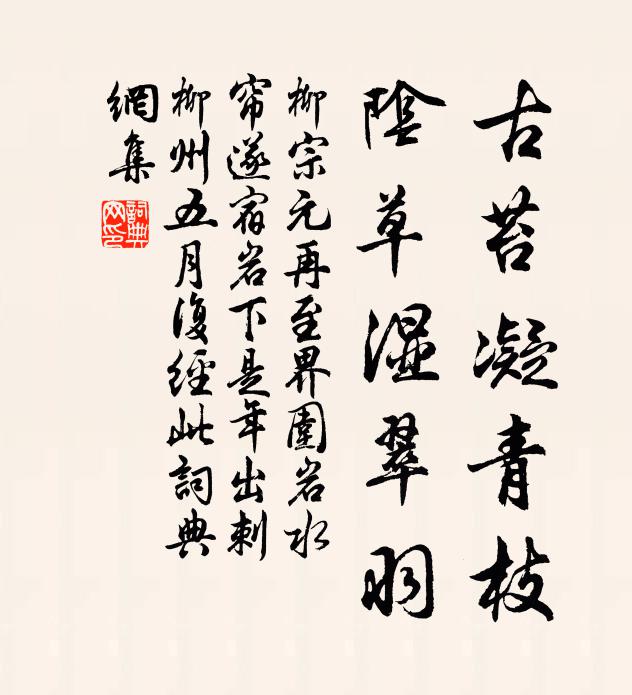 古苔凝青枝
陰草濕翠羽
柳宗元再至界圍岩水
帘遂宿岩下是年出刺
柳州五月復經此詞典
網集
詞典
网印